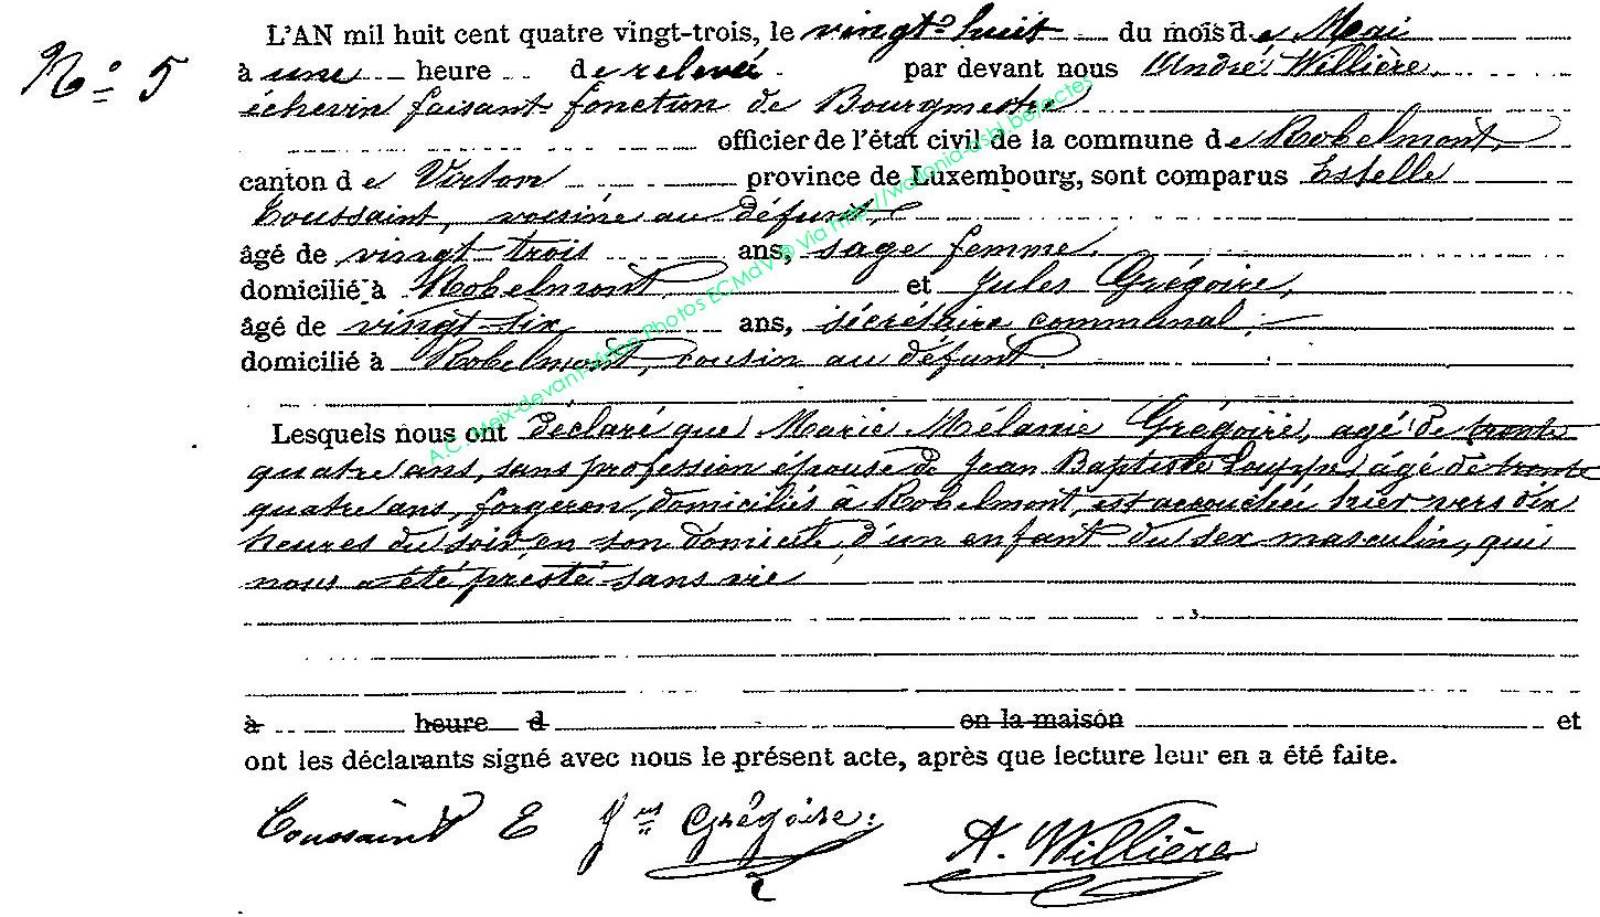 L'AN mil huit cent quatre vingt-trois, le vingt-huit du mois de Mai
N° 5
à une heure de relevée par devant nous André Willière,
échevin faisant fonction de Bourgmestre
officier de l'état civil de la commune de Robelmont,
canton de Virton province de Luxembourg, sont comparus Estelle
Toussaint, voisine au défunt,
âgé de vingt-trois ans, sage femme,
domicilié à Robelmont, et Jules Grégoire,
âgé de vingt-six ans, sécrétaire communal,
domicilié à Robelmont, cousin au défunt.
Lesquels nous ont déclaré que Marie Mélanie Grégoire, agé de trente
quatre ans, sans profession épouse de Jean Baptiste Louppe, âgé de trente
quatre ans, forgeron, domiciliés à Robelmont, est accouchée hier vers dix
heures du soir en son domicile, d'un enfant du sex masculin, qui
nous a été présté sans vie
à heure d en la maison et
ont les déclarants signé avec nous le présent acte, après que lecture leur en a été faite.
Toussaint E Jules Grégoire. A. Willière
A.C. Meix-devant-Virton Photos ECMdV @ Via http://wallonia-asbl.be/actes